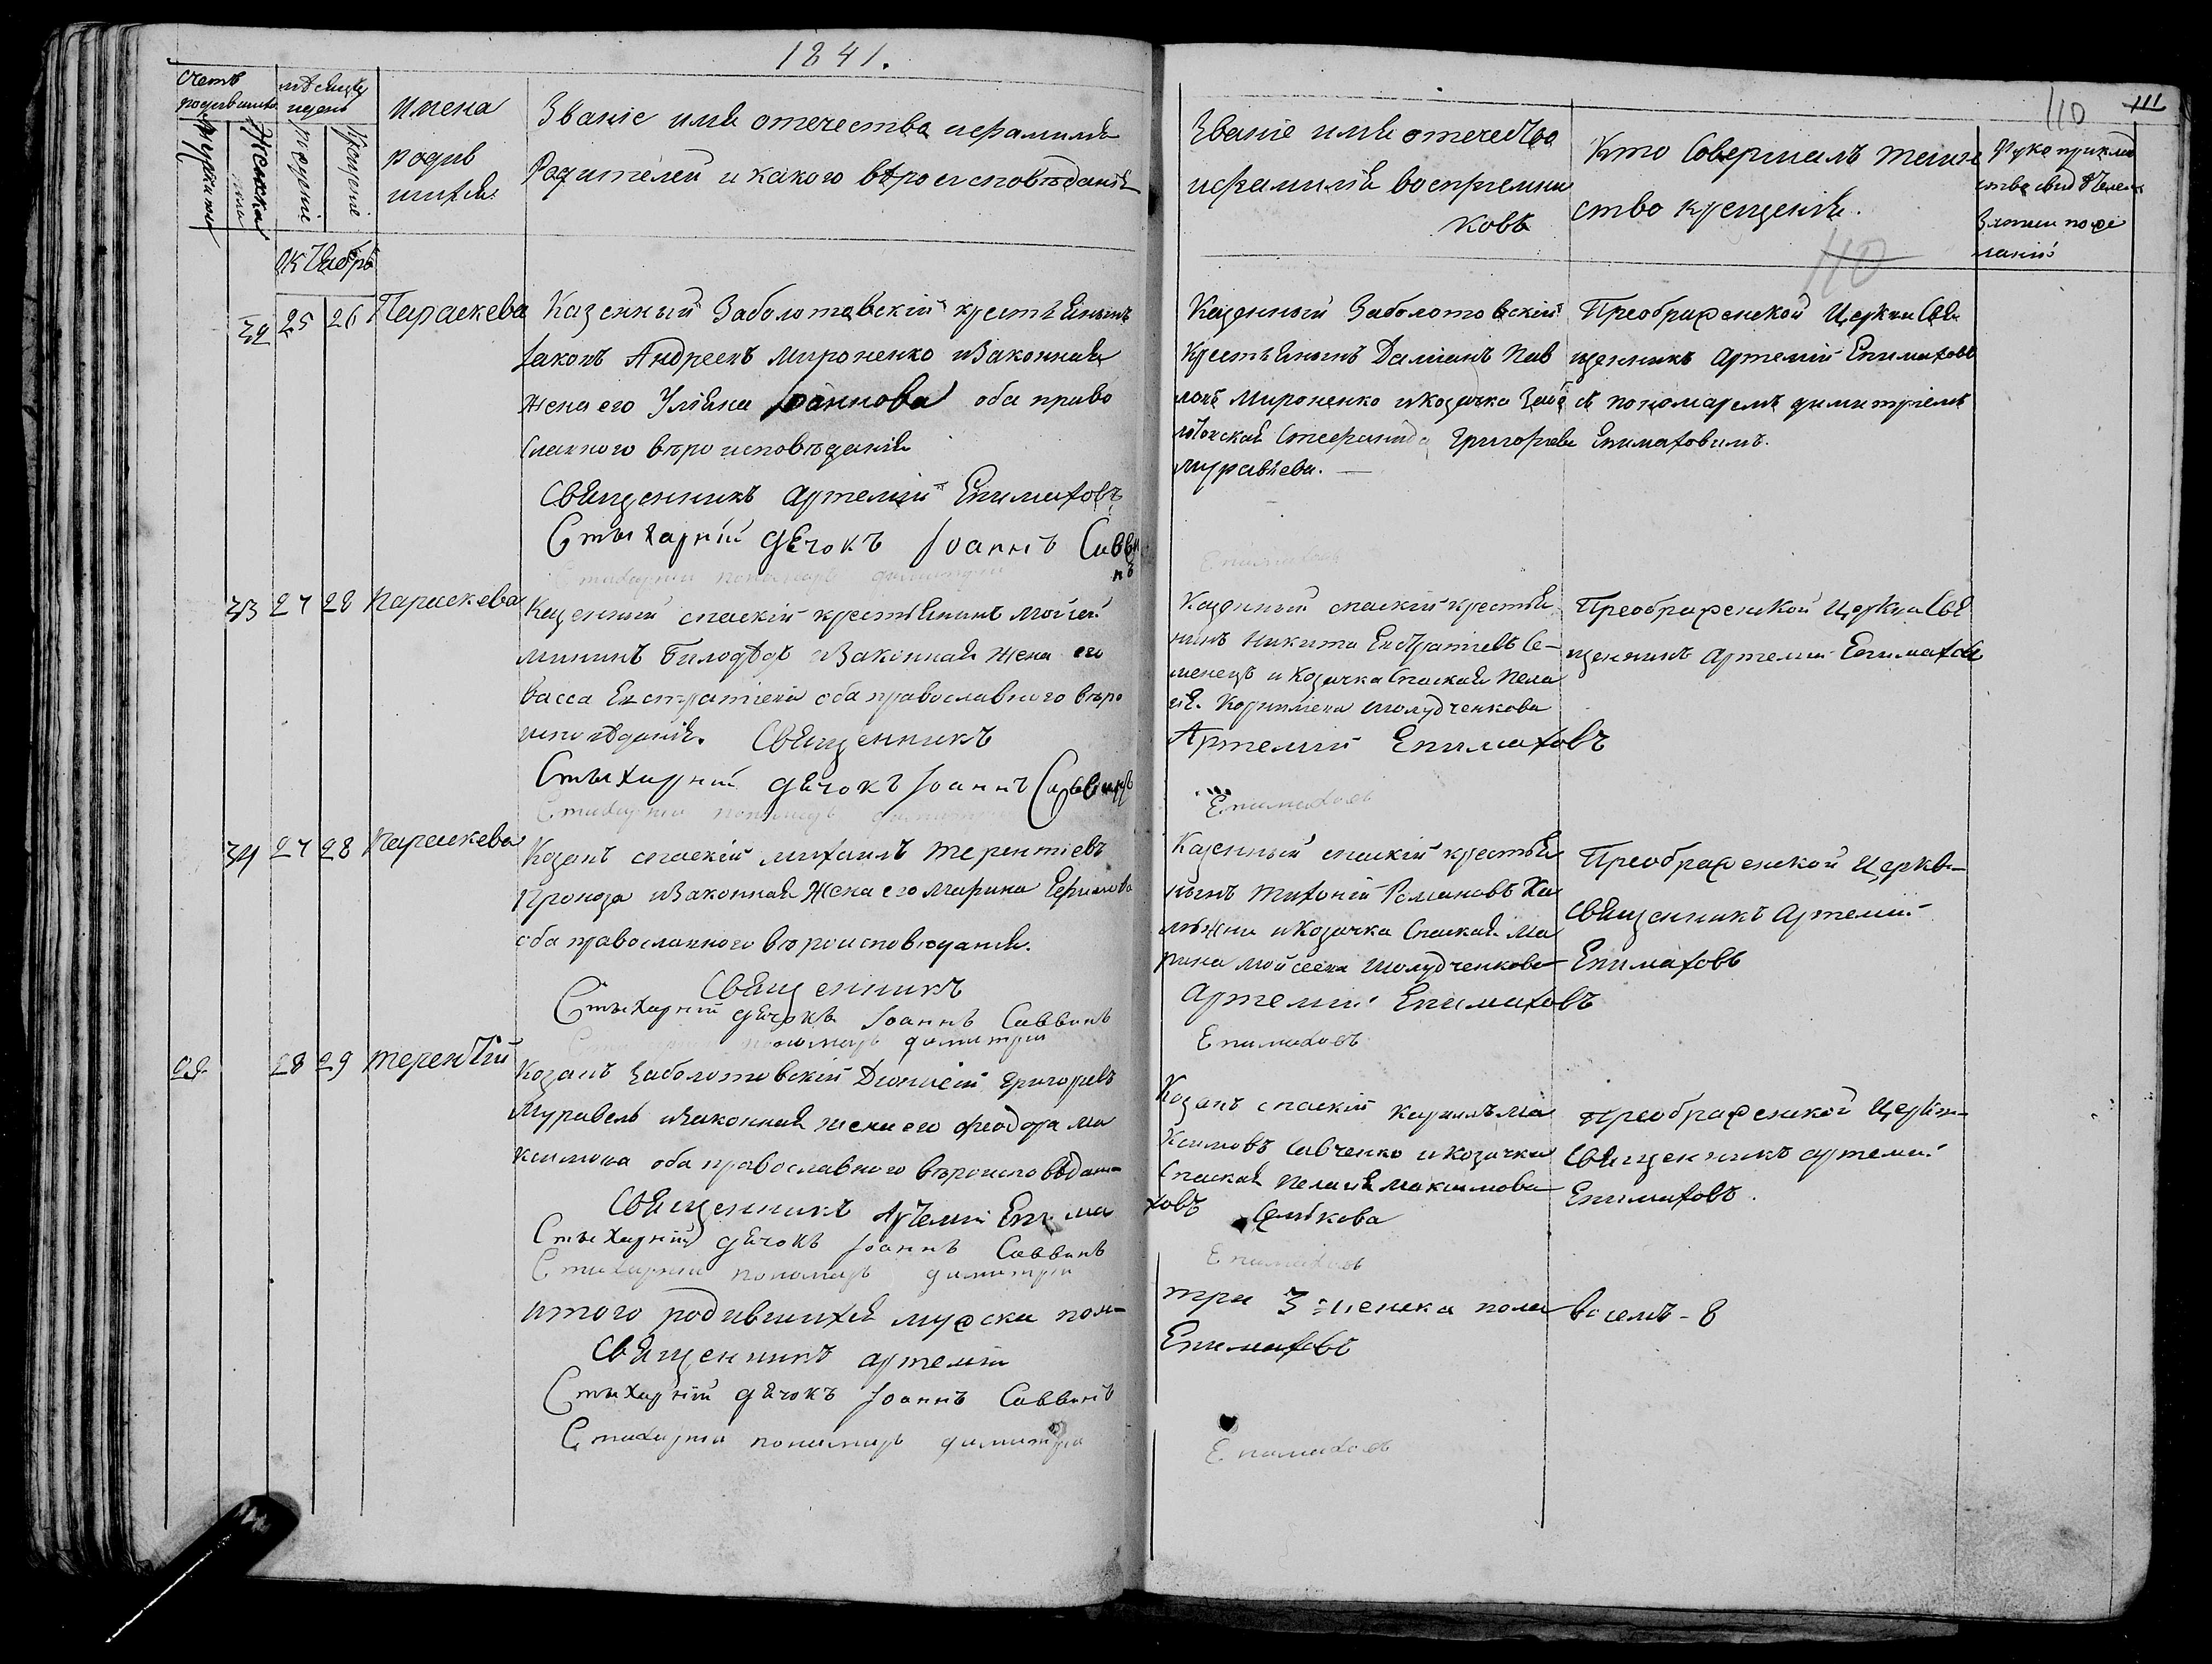 1841.
110
111
Счетъ родившихся
Мужеска
Женска пола
мѣсяцъ и день
рожденіе
Крещеніе
имена родив шихся
Званіе имя отечество и фамилія
Родителей и какого вѣроисповѣданія
Званіе имя отечество
и фамилія воспріемни
ковъ
Кто Совершалъ таин
ство крещенія.
Рукоприклад
ство свидѣтелей
записи по же
ланію
110
Октябрь
32 25 26 Параскева
Казенный Заболотовскій крестьянинъ
Іаковъ Андреевъ Мироненко и Законная
жена его Уліяна Іоаннова оба право
славного вѣроисповѣданія
Священникъ Артемій Епимаховъ
Стыхарній дячокъ Іоаннъ Савви
нъ
Стихарни пономаръ димитрій
Казенный Заболотовскій
Крестьянинъ Даміанъ Пав
ловъ Мироненко и Козачка Забо
лотовская Стефанида Григорьева
Муравьева. —
Епимаховъ
Преображенской Церкви Свя
щенникъ Артемій Епимаховъ
съ пономаремъ димитріемъ
Епимаховимъ.
33 27 28 Параскева
Казенный спаскій крестьянинъ Мойсей
Мининъ Билодѣдъ и Законная жена его
Васса Евстратіева оба православного вѣро
исповѣданія. Священникъ
Стыхарній дячокъ Іоаннъ Саввинъ
Стихарни пономаръ димитрій
Казенный спаскій крестья
нинъ Никита Евстратіевъ Се-
менецъ и Козачка Спаская Пела
гія Корниліева Шолудченкова
Артемій Епимаховъ
Епимаховъ
Преображенской Церкви Свя
щенникъ Артемій Епимаховъ
34 27 28 Параскева
Козакъ спаскій Михаилъ Терентіевъ
Проноза и Законная Жена его Марина Ефимова
оба православного вѣроисповѣданія.
Священникъ
Стыхарній дячокъ Іоаннъ Саввинъ
пономаръ димитрій
Казенный спаскій крестья
нинъ Тихоній Романовъ Ка
лѣжни и Козачка Спаская Ма
рина Мойсеева Шолудченкова
Артемій Епимаховъ
Епимаховъ
Преображенской Церкви-
Священникъ Артемій
Епимаховъ
29 28 29 Терентій
Козакъ Заболотовскій Діонисій Григорьевъ
Муравель и Законная жена его Феодора Ма
ксимова оба православного вѣроисповѣдан-
Священникъ Артемій Епима
Стыхарній дячокъ Іоаннъ Саввинъ
Стихарни пономаръ димитрій
Козакъ спаскій Кирилъ Ма
ксимовъ Савченко и Козачка
Спаская Пелагія Максимова
ховъ
Епимаховъ
Преображенской Церкви-
Священникъ Артемій
Епимаховъ.
итого родившихся мужска пол-
Священникъ Артемій
Стыхарній дячокъ Іоаннъ Саввинъ
Стихарни пономаръ димитрій
три 3 женска пола
Епимаховъ
Епимаховъ
восемъ - 8